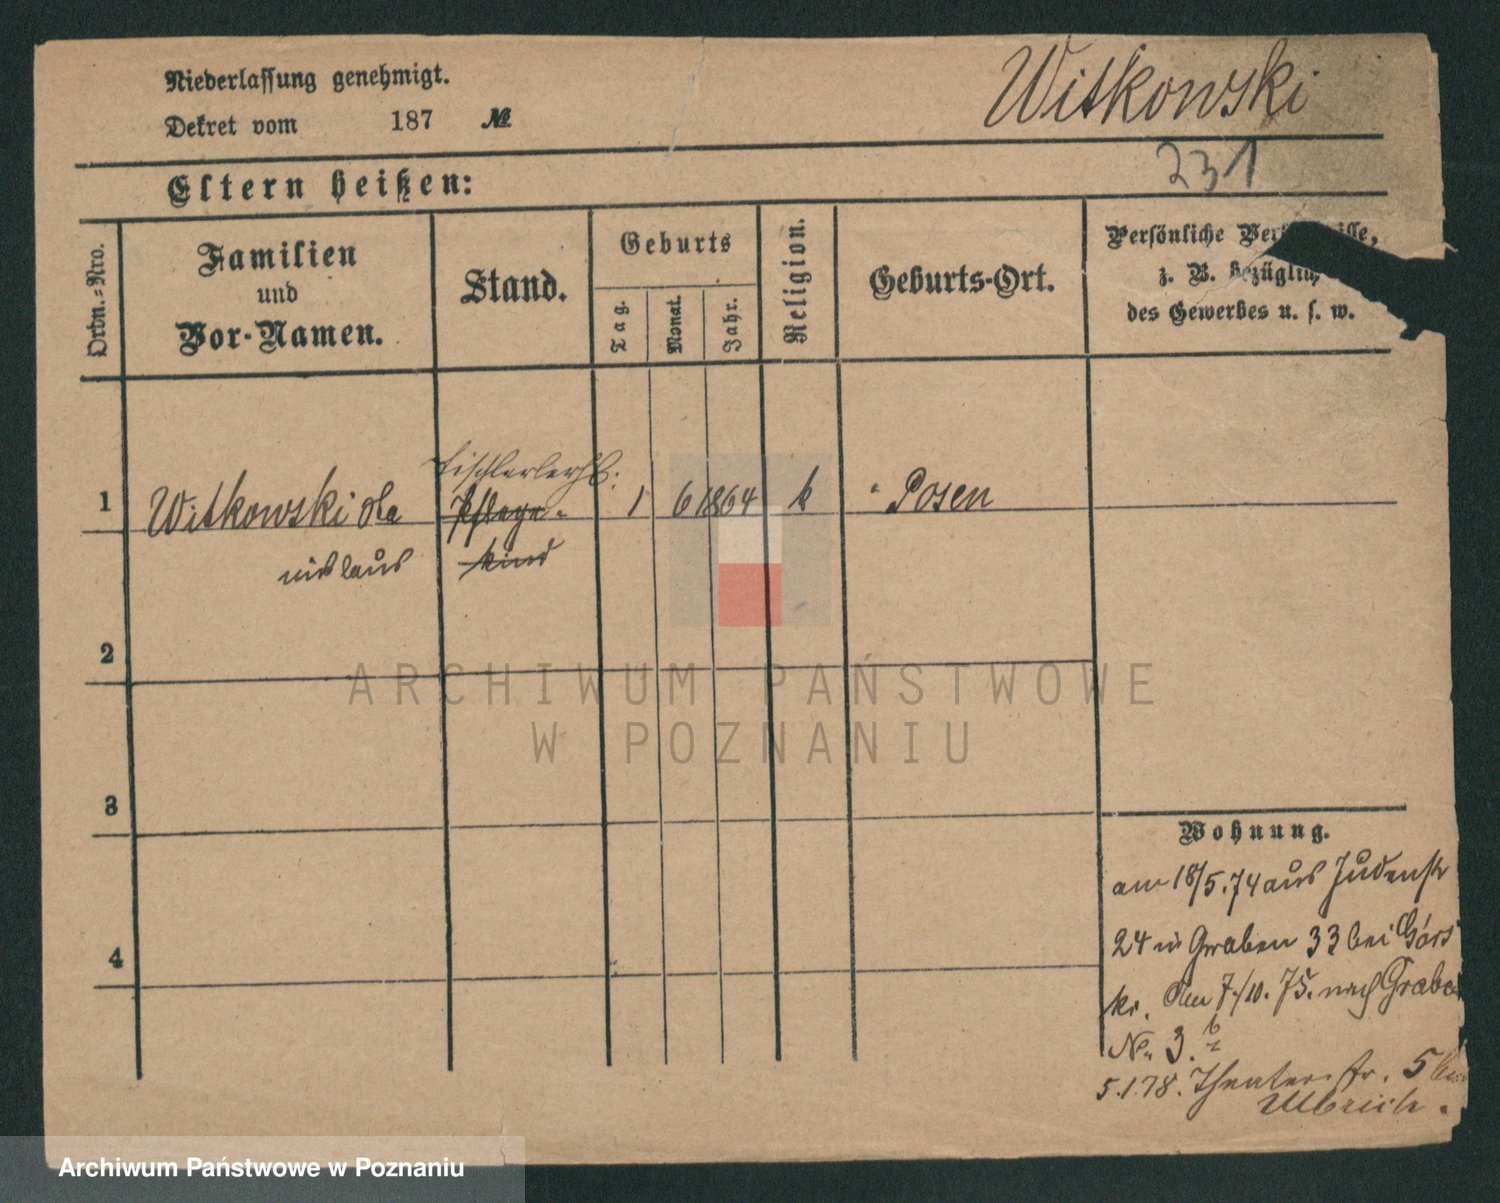 Niederlassung genehmigt.
Witkowski
Dekret vom 187 №
231
Eltern heißen:
Ordn.-Nro.
Familien
und
Vor-Namen.
Stand.
Geburts
Tag.
Monat.
Jahr.
Religion.
Geburts-Ort.
Persönliche
z. B. bezüglich
des Gewerbes u. s. w.
Tischlerlehrl.
1 Witkowski Sta Pflege- 1 6 1864 k Posen
nislaus kind
2
3
4
Wohnung.
am 18/5.74 aus Judenstr
24 in Graben 33 bei Górs
kr. Am 7./10. 75. nach Grabe
No 3.
5.1.78. Theaterstr. 5 bei
Ulbrich.
ARCHIWUM PAŃSTWOWE
W POZNANIU
Archiwum Państwowe w Poznaniu